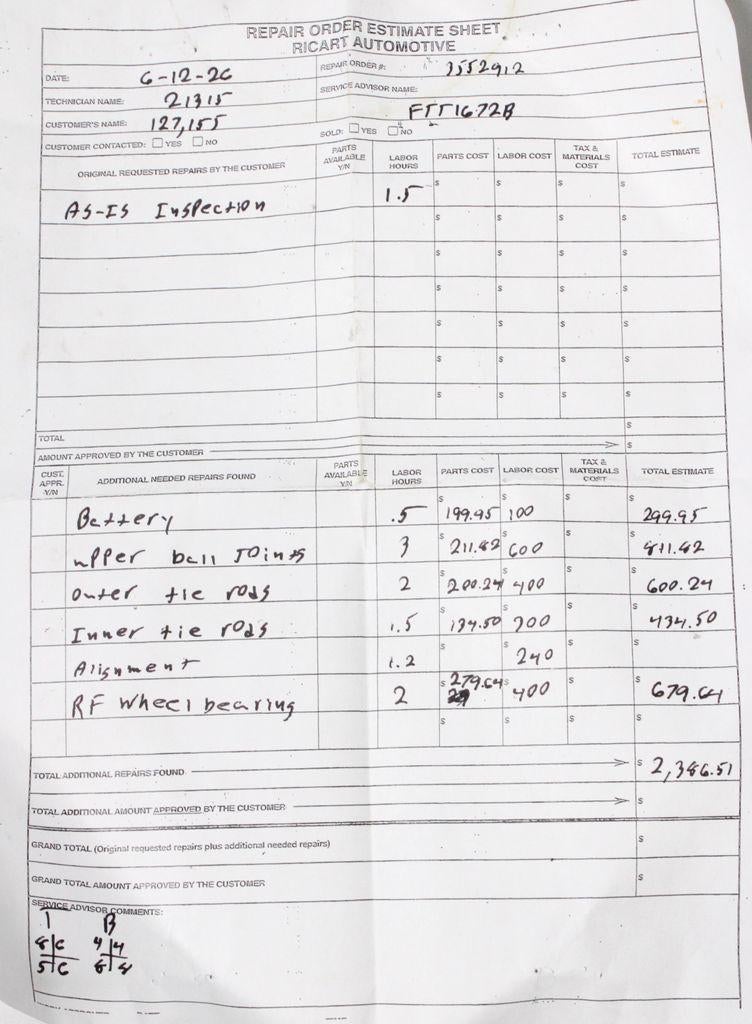 REPAIR ORDER ESTIMATE SHEET
RICART AUTOMOTIVE
DATE: 6-12-26 REPAIR ORDER #: 3552912
TECHNICIAN NAME: 21315 SERVICE ADVISOR NAME:
CUSTOMER'S NAME: 127,155 FTT1672B
CUSTOMER CONTACTED: YES NO SOLD: YES NO
ORIGINAL REQUESTED REPAIRS BY THE CUSTOMER PARTS AVAILABLE Y/N LABOR HOURS PARTS COST LABOR COST TAX & MATERIALS COST TOTAL ESTIMATE
AS-IS Inspection 1.5 $ $ $ $
$ $ $ $
$ $ $ $
$ $ $ $
$ $ $ $
$ $ $ $
$ $ $ $
TOTAL $
AMOUNT APPROVED BY THE CUSTOMER $
CUST. APPR. Y/N ADDITIONAL NEEDED REPAIRS FOUND PARTS AVAILABLE Y/N LABOR HOURS PARTS COST LABOR COST TAX & MATERIALS COST TOTAL ESTIMATE
Battery .5 $ 199.95 $ 100 $ $ 299.95
upper ball joints 3 $ 211.82 $ 600 $ $ 811.82
outer tie rods 2 $ 200.24 $ 400 $ $ 600.24
Inner tie rods 1.5 $ 134.50 $ 300 $ $ 434.50
Alignment 1.2 $ 240 $
RF wheel bearing 2 $ 279.64 $ 400 $ $ 679.64
$ $ $ $
TOTAL ADDITIONAL REPAIRS FOUND $ 2,386.51
TOTAL ADDITIONAL AMOUNT APPROVED BY THE CUSTOMER $
GRAND TOTAL (Original requested repairs plus additional needed repairs) $
GRAND TOTAL AMOUNT APPROVED BY THE CUSTOMER $
SERVICE ADVISOR COMMENTS:
T B
8 6 4 4
5 6 8 8